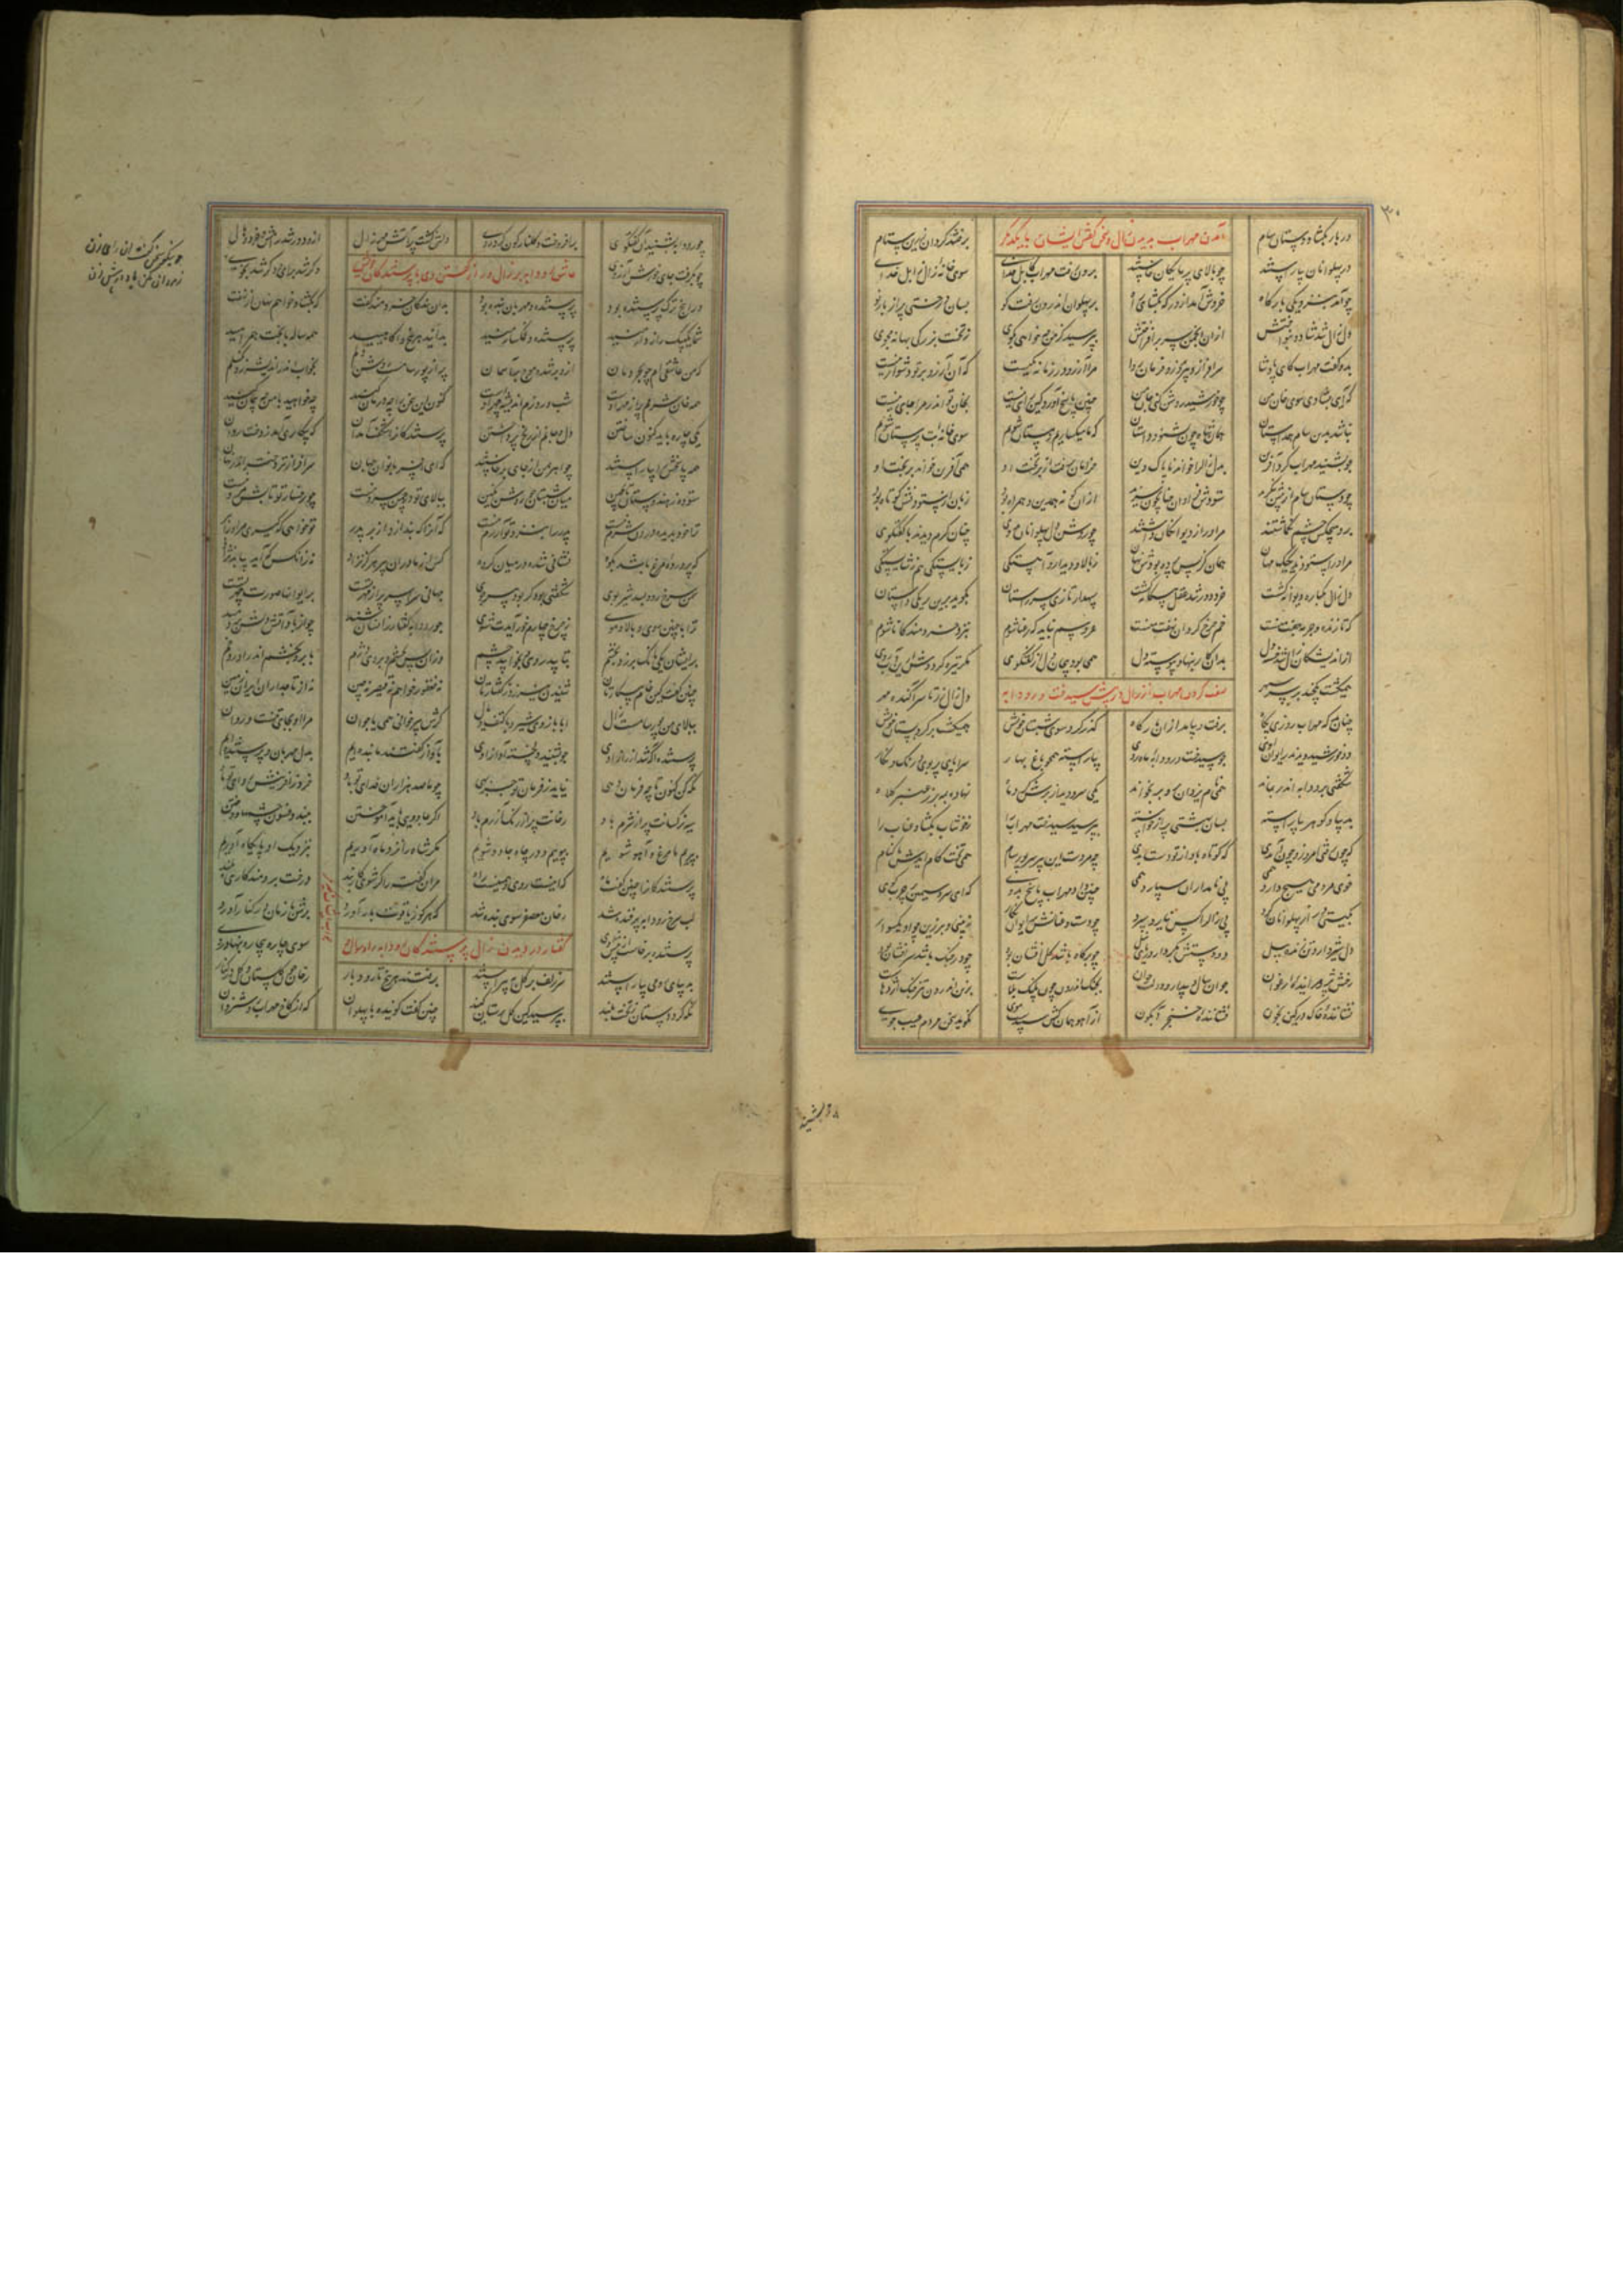 ۳۰
در بار بکشاد دستان سام برفتند گردان زرین ستام
آمدن مهراب بدیدن زال و سخن گفتن ایشان با یکدیگر
در پهلوانان بیاراستند چو بالای پرمایگان خواستند برون رفت مهراب کابل خدای سوی خانه زال زابل خدای
چو آمد بنزدیکی بارگاه خروش آمد از در که بگشای راه بر پهلوان اندرون رفت گو بسان درختی پر از بار نو
دل زال شد شاد و بنواختش ازان انجمن سر برافراختش بپرسید کز من چه خواهی بجوی ز تخت بزرگی بهانه مجوی
بدو گفت مهراب کای پادشا سرافراز و پیروز و فرمان روا مرا آرزو در زمانه یکیست که آن آرزو بر تو دشوار نیست
که آیی بشادی سوی خان من چو خورشید روشن کنی جان من چنین پاسخ آورد کین رای نیست بخان تو اندر مرا جای نیست
نباشد بدین سام همداستان همان شاه چون بشنود داستان که ما میگساریم و مستان شویم سوی خانه بت پرستان شویم
چو بشنید مهراب کرد آفرین بدل زال را خواند ناپاک دین خرامان برفت از بر تخت او همی آفرین خواند بر بخت او
چو دستان سام از پسش بنگرید ستودش فراوان چنان چون سزید ازان کو نه همدین و همراه بود زبان از ستودنش کوتاه بود
برو هیچکس چشم نگماشتند مرو را ز دیوانگان داشتند چو روشن دل پهلوان را بدوی چنان گرم دیدند با گفتگوی
مرو را ستودند یک یک مهان همان کز پس پرده بودش نهان ز بالا و دیدار و آهستگی ز بایستگی هم ز شایستگی
دل زال یکباره دیوانه گشت خرد دور شد عقل بیگانه گشت سپهدار تازی سر راستان بگوید برین بر یکی داستان
که تا زنده ام چرمه جفت منست خم چرخ گردان نهفت منست عروسم نباید که رعنا شوم بنزد خردمند کانا شوم
از اندیشکان زال شد خسته دل بدان کار بنهاد پیوسته دل همی بود پیچان دل از گفتگوی مگر تیره گردد ازین آب روی
همی گشت یکچند بر سر سپهر دل زال زر تا سر آکنده مهر
صفت کردن مهراب از زال در پیش سیندخت و رودابه
چنان بد که مهراب روزی پگاه برفت و بیامد ازان بارگاه گذر کرد سوی شبستان خویش همی گشت بر گرد بستان خویش
دو خورشید دید اندر ایوان اوی چو سیندخت و رودابه ماه روی بیاراسته همچو باغ بهار سراپای پر بوی و رنگ و نگار
شگفتی برودابه اندر بماند همی نام یزدان بروبر بخواند یکی سرو دید از برش گرد ماه نهاده ز عنبر کلاه
بدیبا و گوهر بیاراسته بسان بهشتی پر از خواسته بپرسید سیندخت مهراب را ز خوشاب بگشاد عناب را
که چون رفتی امروز و چون آمدی که کوتاه باد از تو دست بدی چه مردست این پیرسر پور سام همی تخت کام آیدش یا کنام
خوی مردمی هیچ دارد همی پی نامداران سپارد همی چنین داد مهراب پاسخ بدوی که ای سرو سیمین بر خوب روی
بگیتی در از پهلوانان گرد پی زال زر کس نیارد سپرد چو دست و عنانش بر ایوان نگار نبینی و بر زین چنو یک سوار
دل شیر نر دارد و زور پیل دو دستش بکردار دریای نیل چو بر گاه باشد گل افشان بود چو در جنگ باشد سرافشان بود
رخش پژمراننده ارغوان جوان سال و بیدار و دولت جوان بجنگ اندرون چون نهنگ بلاست بزین اندرون تیز چنگ اژدهاست
نشاننده خاک در کین بخون فشاننده خنجر آبگون از آهو همان کش سپیدست موی نگوید سخن مردم عیب جوی
چو رودابه بشنید آن گفتگوی برافروخت و گلنار گون کرد روی دلش گشت پر آتش مهر زال ازو دور شد رامش و خورد و هال
چو بگرفت جای خرش آرزوی دگر شد برای و دگر شد بخوی
ورا پنج ترک پرستنده بود پرستنده و مهربان بنده بود بدان بندگان خردمند گفت که بگشاد خواهم نهان از نهفت
شما یک بیک رازدار منید پرستنده و غمگسار منید بدانید هر پنج و آگه بید همه ساله با بخت همره بید
که من عاشقی ام چو بحر دمان ازو بر شده موج بر آسمان پر از پور سامست روشن دلم بخواب اندر اندیشه زو نگسلم
همه خان شرمم پر از مهر اوست شب و روزم اندیشه چهر اوست کنون این سخن را چه درمان کنید چه خواهید با من چه پیمان کنید
یکی چاره باید کنون ساختن دل و جانم از رنج پرداختن پرستندگان را شگفت آمد آن که بدکاری آمد ز دخت ردان
همه پاسخش را بیاراستند چو اهرمن از جای برخاستند که ای افسر بانوان جهان سرافرازتر دختر اندر مهان
ستوده ز هندوستان تا بچین میان شبستان چو روشن نگین ببالای تو بر چمن سرو نیست چو رخسار تو تابش پرو نیست
ترا خود بدیده درون شرم نیست پدر را بنزد تو آزرم نیست که آنرا که اندازد از بر پدر تو خواهی که گیری مرو را ببر
که پرورده مرغ باشد بکوه نشانی شده در میان گروه کس از مادران پیر هرگز نزاد نه زانکس که آید بباید نژاد
چنین سرخ رو و بسد شیر بوی شگفتی بود گر بود پیرجوی جهانی سراسر پر از مهر تست بر ایوانها صورت چهر تست
ترا با چنین روی و بالا و موی ز چرخ چهارم خور آیدت شوی چو رودابه گفتار ایشان شنید چو از باد آتش دلش بردمید
بر ایشان یکی بانگ برزد بخشم بتابید روی و بخوابید چشم وزان پس بخشم و بروی دژم بابرو ز خشم اندر آورد خم
چنین گفت کین خام پیکارتان شنیدن نیرزد گفتارتان نه فغفور خواهم نه قیصر نه چین نه از تاجداران ایران زمین
ببالای من پور سامست زال ابا بازوی شیر و با کتف و یال گرش پیر خوانی همی یا جوان مرا او بجای تنست و روان
پرستنده آگه شد از راز اوی چو بشنید دلخسته آواز اوی بآواز گفتند ما بنده ایم بدل مهربان و پرستنده ایم
نگه کن کنون تا چه فرمان دهی نیاید ز فرمان تو جز بهی چو ما صد هزاران فدای تو باد
سیه نرگسانت پر از شرم باد رخانت پر از رنگ آزرم باد اگر جادویی باید آموختن ببند و فسون چشمها دوختن
بپریم با مرغ و آهو شویم بپوییم و در چاه جادو شویم مگر شاه را نزد ماه آوریم بنزدیک او پایگاه آوریم
پرستندگان را چنین گفت ماه که اینست روی و همینست راه مران گفت را گر شوی کاربند درخت برومند کاری بلند
لب سرخ رودابه پرخنده شد رخان معصفر سوی بنده شد که هر روز یاقوت بار آورد برش تازمان در کنار آورد
پرستنده برخاست از پیش اوی سوی چاره بیچاره بنهاد روی
گفتار در دیدن زال پرستندگان رودابه را
بیاراستند سر زلف بر گل بپیراستند برفتند هر پنج تا رودبار رخان چون گلستان و گل در کنار
نگه کرد دستان ز تخت بلند بپرسید کین گل پرستان کیند چنین گفت گوینده با پهلوان که از کاخ مهراب روشن روان
چو نیکو سخن گفت آن رای زن
ز مردان مکن یاد در پیش زن